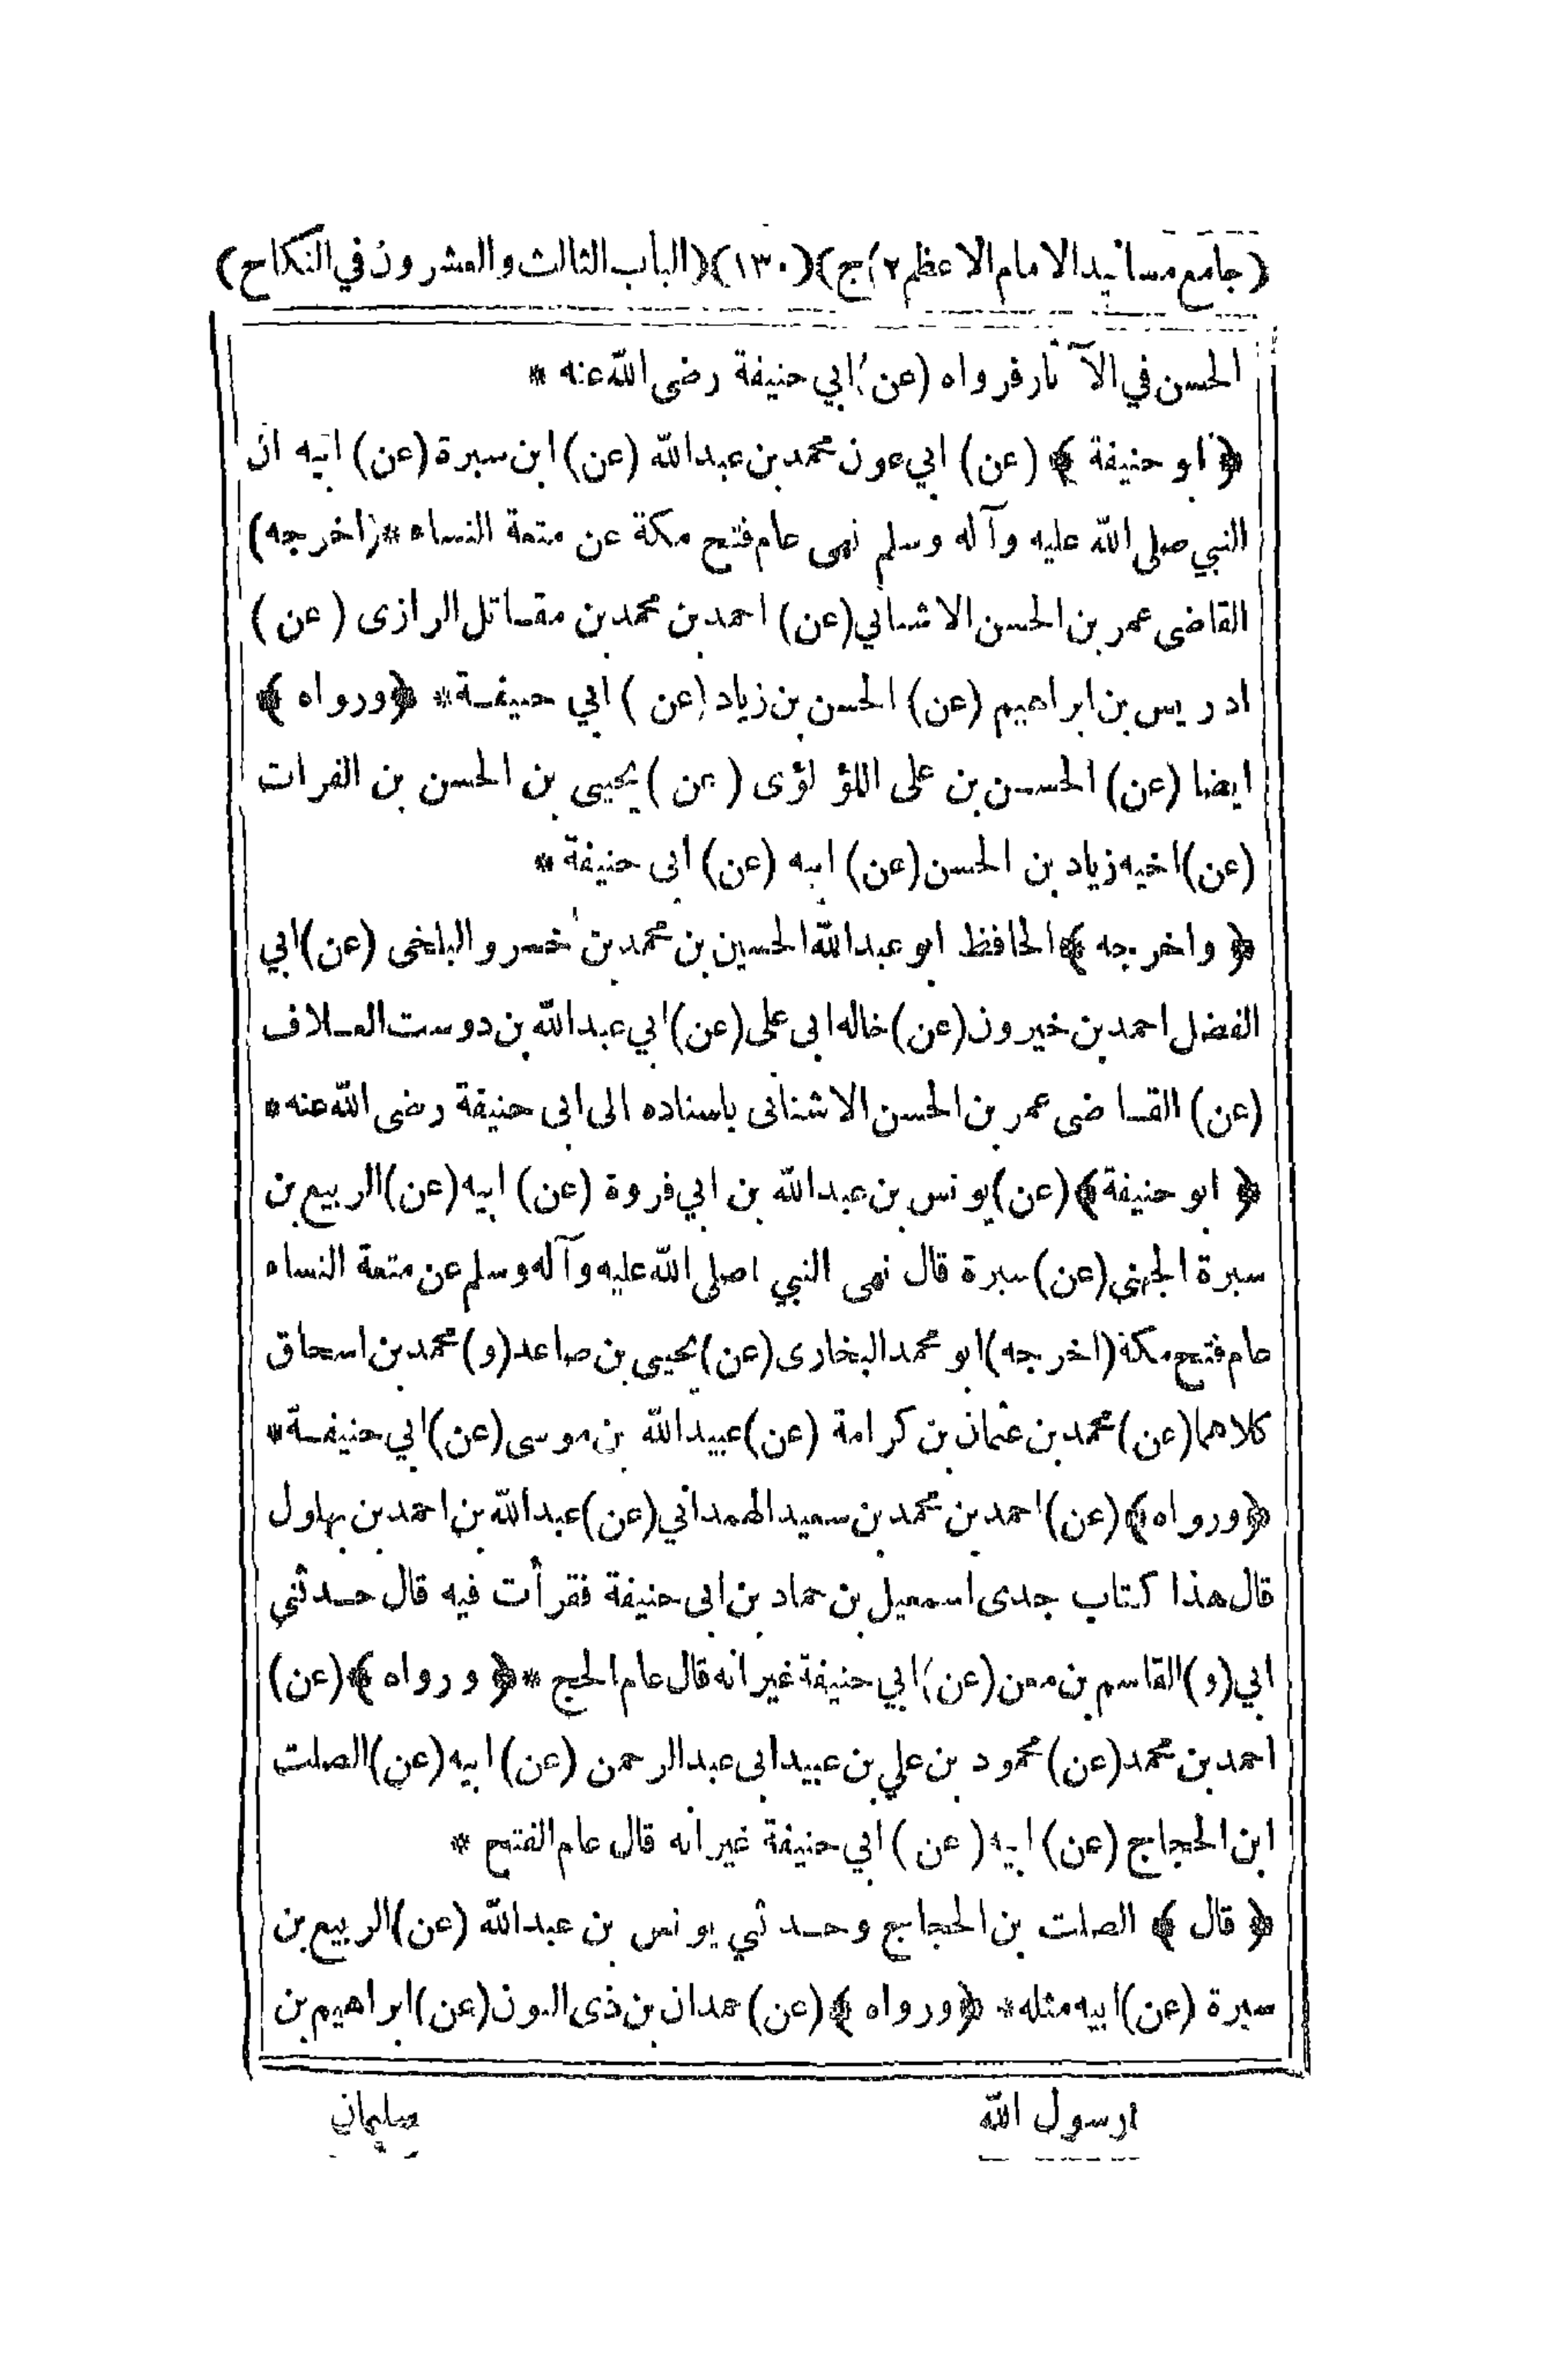 (جامع مسانيد الامام الاعظم ٢/ ج) (١٣٠) (الباب الثالث والعشرون في النكاح)
الحسن في الآثار فرواه (عن) ابي حنيفة رضى الله عنه *
﴿ ابو حنيفة ﴾ (عن) ابي عون محمد بن عبدالله (عن) ابن سبرة (عن) ابيه ان
النبي صلى الله عليه وآله وسلم نهى عام فتح مكة عن متعة النساء * (اخرجه)
القاضى عمر بن الحسن الاشناني (عن) احمد بن محمد بن مقاتل الرازى (عن)
ادريس بن ابراهيم (عن) الحسن بن زياد (عن) ابي حنيفة * ﴿ ورواه ﴾
ايضا (عن) الحسن بن على اللؤلؤى (عن) يحيى بن الحسن بن الفرات
(عن) اخيه زياد بن الحسن (عن) ابيه (عن) ابى حنيفة *
﴿ واخرجه ﴾ الحافظ ابو عبدالله الحسين بن محمد بن خسرو البلخى (عن) ابي
الفضل احمد بن خيرون (عن) خاله ابى على (عن) ابي عبدالله بن دوست العلاف
(عن) القاضى عمر بن الحسن الاشنانى باسناده الى ابى حنيفة رضى الله عنه *
﴿ ابو حنيفة ﴾ (عن) يونس بن عبدالله بن ابي فروة (عن) ابيه (عن) الربيع بن
سبرة الجهني (عن) سبرة قال نهى النبي ١ صلى الله عليه وآله وسلم عن متعة النساء
عام فتح مكة (اخرجه) ابو محمد البخارى (عن) يحيى بن صاعد (و) محمد بن اسحاق
كلاهما (عن) محمد بن عثمان بن كرامة (عن) عبيدالله بن موسى (عن) ابي حنيفة *
﴿ ورواه ﴾ (عن) احمد بن محمد بن سعيد الهمداني (عن) عبدالله بن احمد بن بهلول
قال هذا كتاب جدى اسمعيل بن حماد بن ابى حنيفة فقرأت فيه قال حدثني
ابي (و) القاسم بن معن (عن) ابي حنيفة غير انه قال عام الحج * ﴿ ورواه ﴾ (عن)
احمد بن محمد (عن) محمود بن علي بن عبيد ابى عبدالرحمن (عن) ابيه (عن) الصلت
ابن الحجاج (عن) ابيه (عن) ابي حنيفة غير انه قال عام الفتح *
﴿ قال ﴾ الصلت بن الحجاج وحدثني يونس بن عبدالله (عن) الربيع بن
سبرة (عن) ابيه مثله * ﴿ ورواه ﴾ (عن) حمدان بن ذى النون (عن) ابراهيم بن
١ رسول الله
سليمان